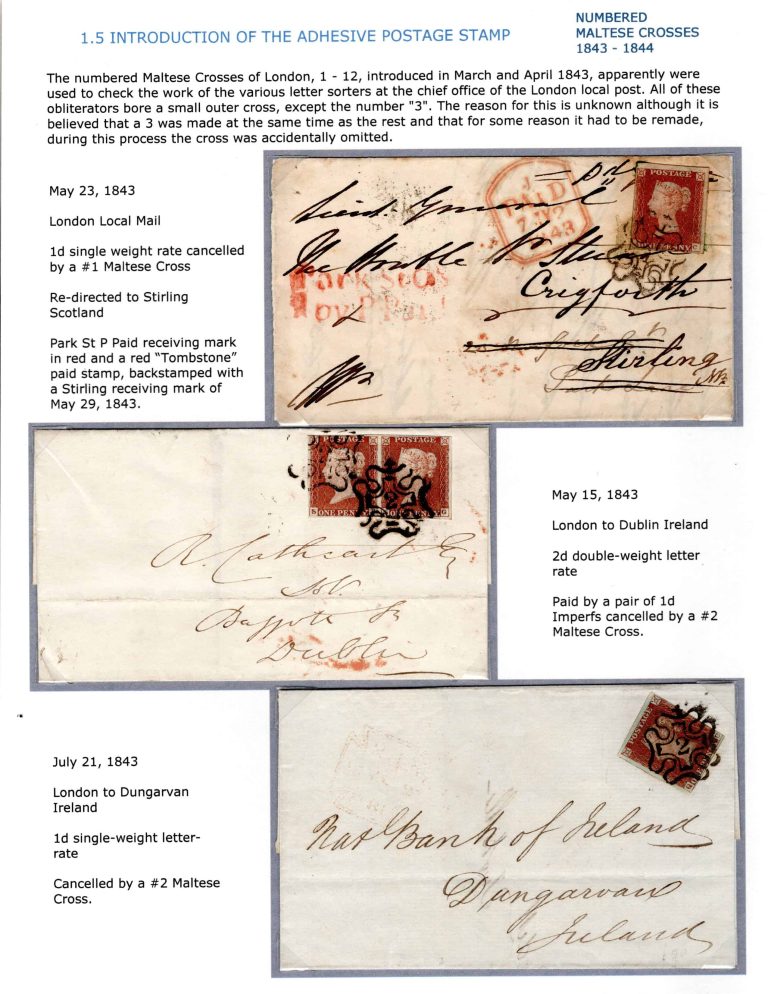 1.5 INTRODUCTION OF THE ADHESIVE POSTAGE STAMP
NUMBERED
MALTESE CROSSES
1843 - 1844
The numbered Maltese Crosses of London, 1 - 12, introduced in March and April 1843, apparently were
used to check the work of the various letter sorters at the chief office of the London local post. All of these
obliterators bore a small outer cross, except the number "3". The reason for this is unknown although it is
believed that a 3 was made at the same time as the rest and that for some reason it had to be remade,
during this process the cross was accidentally omitted.
May 23, 1843
London Local Mail
1d single weight rate cancelled
by a #1 Maltese Cross
Re-directed to Stirling
Scotland
Park St P Paid receiving mark
in red and a red “Tombstone”
paid stamp, backstamped with
a Stirling receiving mark of
May 29, 1843.
J
PAID
1843
POSTAGE
ONE PENNY
Lieut General
The Honble
Park St
Py P Paid
Stirling
POSTAGE
POSTAGE
S ONE PENNY
G
2
R. Cathcart Esq
Baggote St
Dublin
May 15, 1843
London to Dublin Ireland
2d double-weight letter
rate
Paid by a pair of 1d
Imperfs cancelled by a #2
Maltese Cross.
July 21, 1843
London to Dungarvan
Ireland
1d single-weight letter-
rate
Cancelled by a #2 Maltese
Cross.
POSTAGE
2
Nat Bank of Ireland
Dungarvan
Ireland